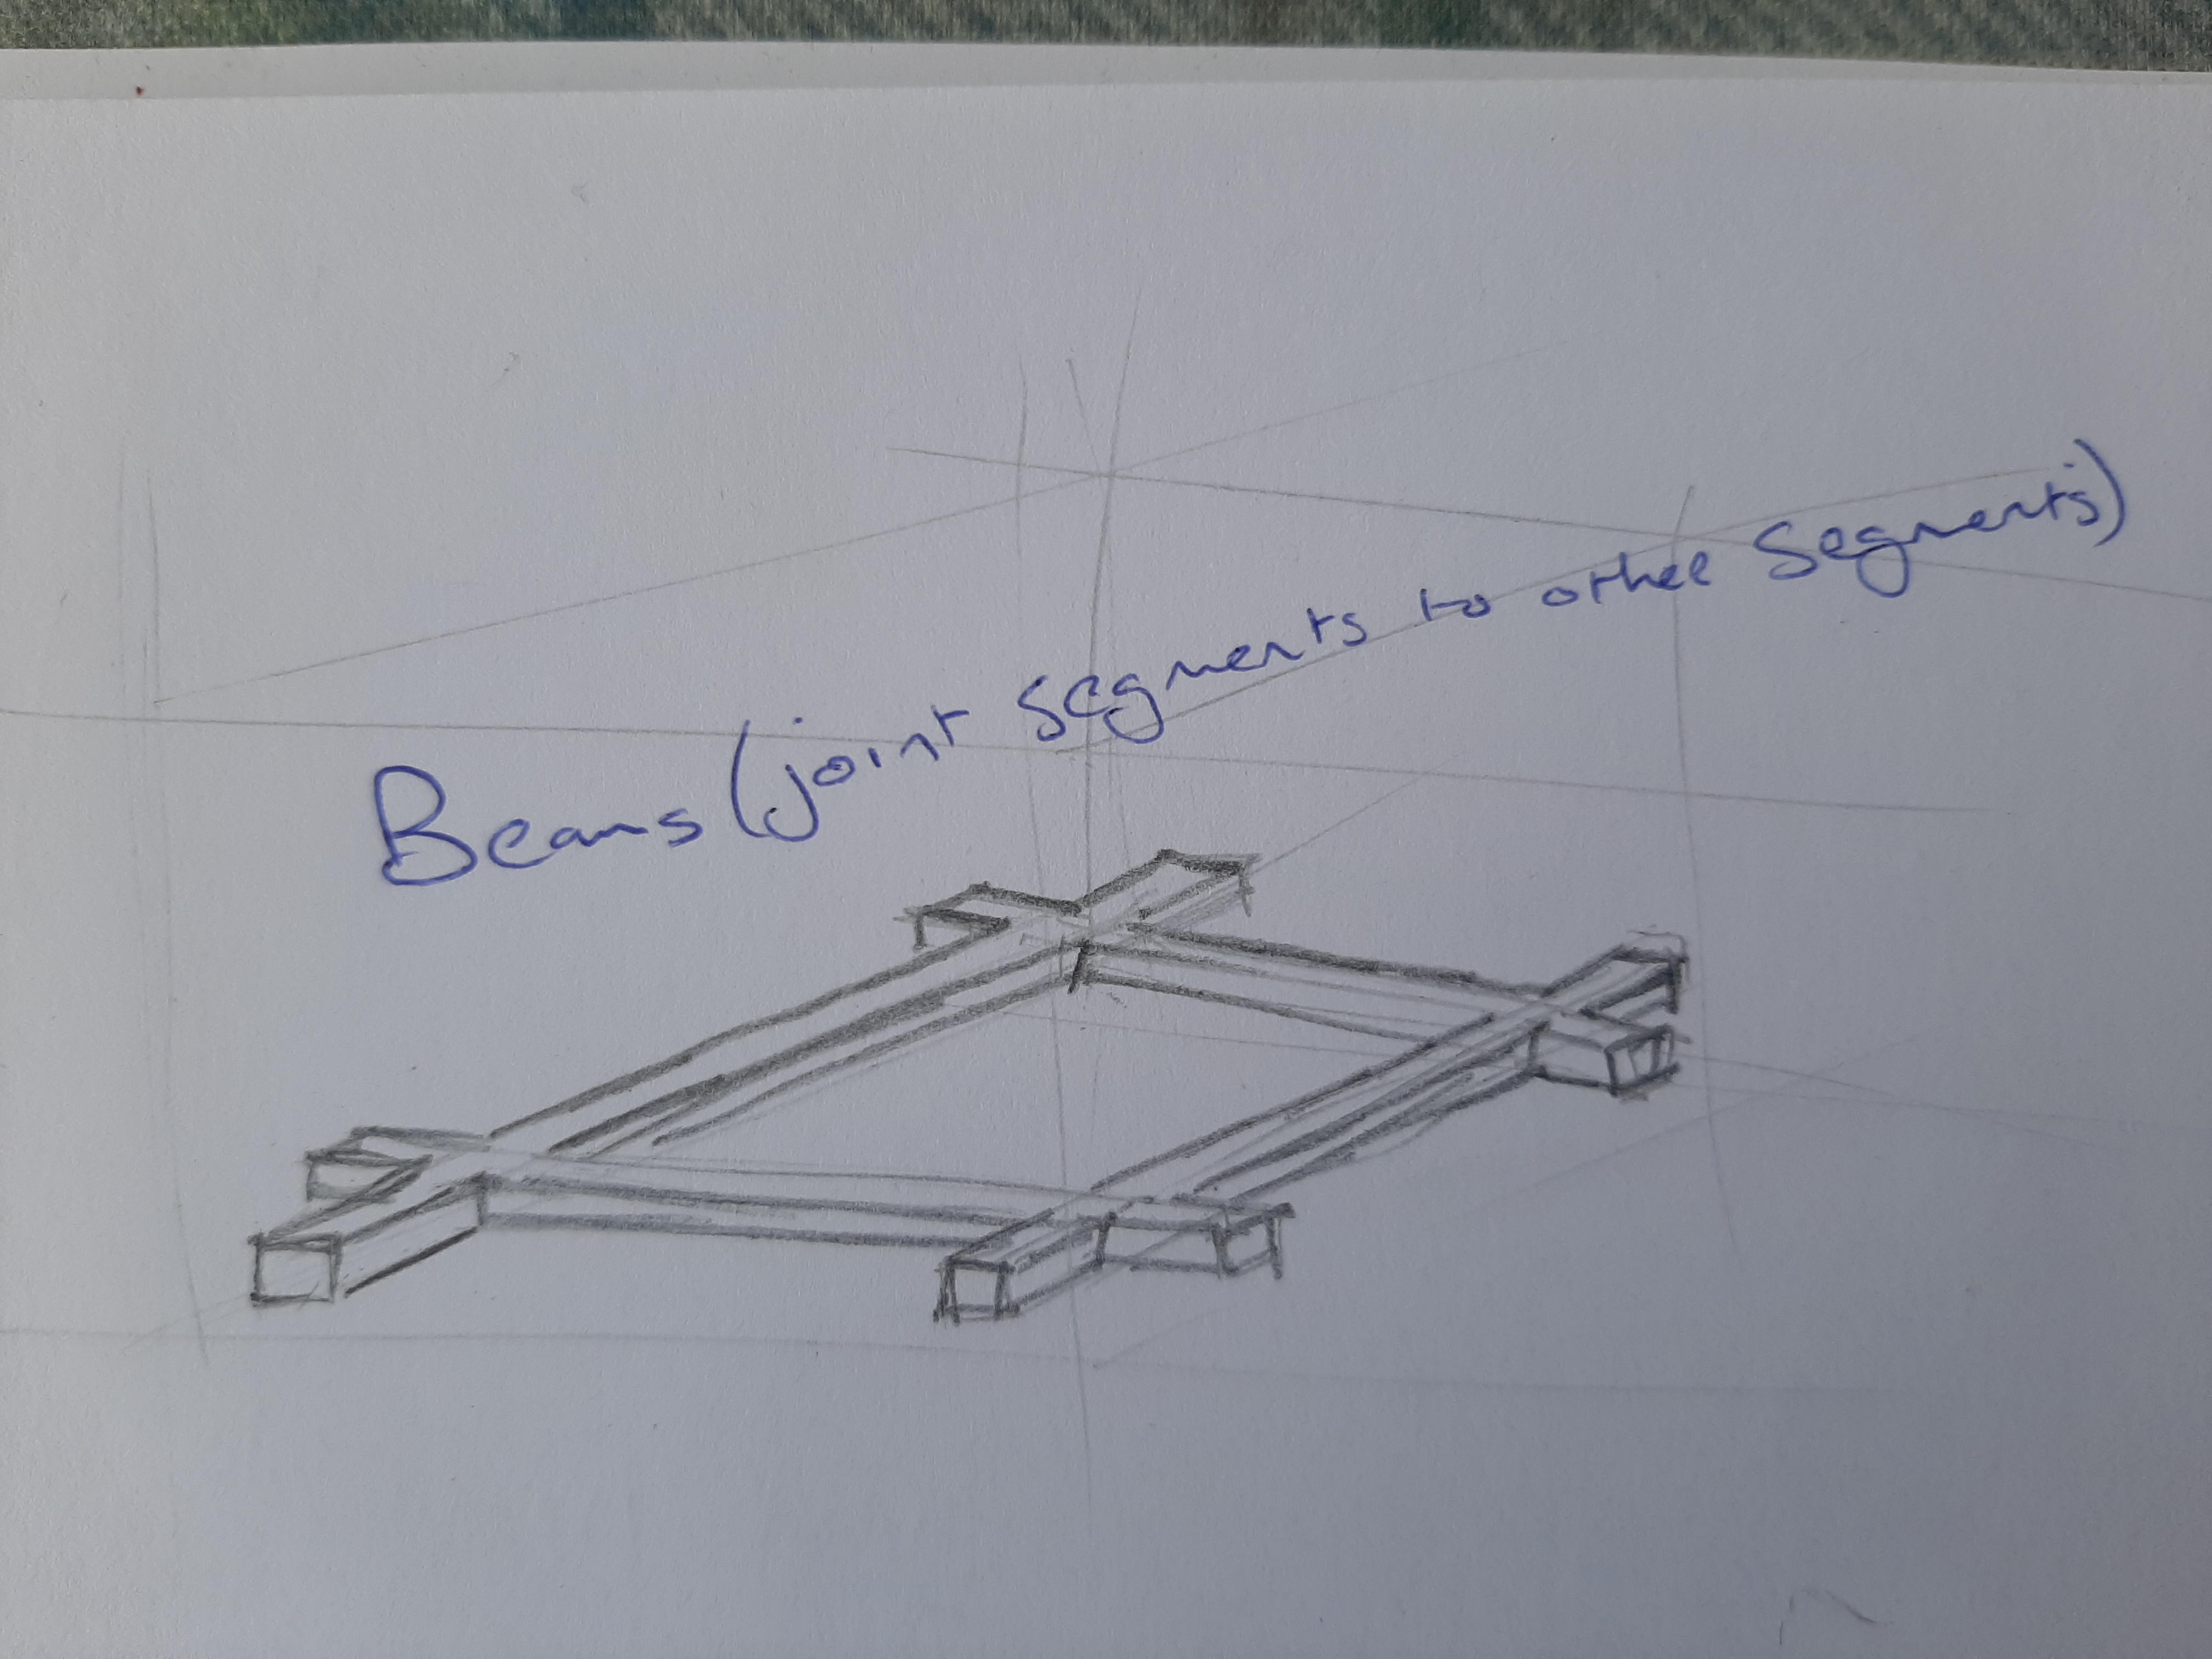 Beams (joint segments to other segments)